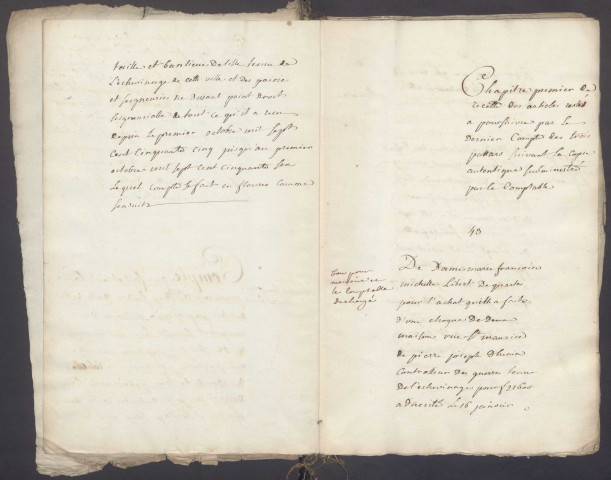 taille et banlieue de lille tenu de
L'echevinage de cette ville et des pairies
et seigneuries ne devant point droit
seigneurial de tout ce qu'il a reçu
depuis le premier octobre mil sept
cent cinquante cinq jusqu'au premier
octobre mil sept cent cinquante six
Lequel compte se fait en florins comme
s'ensuit
Chapitre premier de
recette des articles restés
a poursuivre par le
dernier Compte des trois
pattars suivant la copie
autentique subministrée
par le Comptable
43
tenu pour
memoire et
le Comptable
dechargé
De Dame marie françoise
michelle Libert de quartes
pour l'achat qu'elle a faite
d'une choque de deux
maisons rue St maurice
de pierre joseph
Controleur des guerres tenue
de l'echevinage pour f 21600
a Devérité le 16 janvier